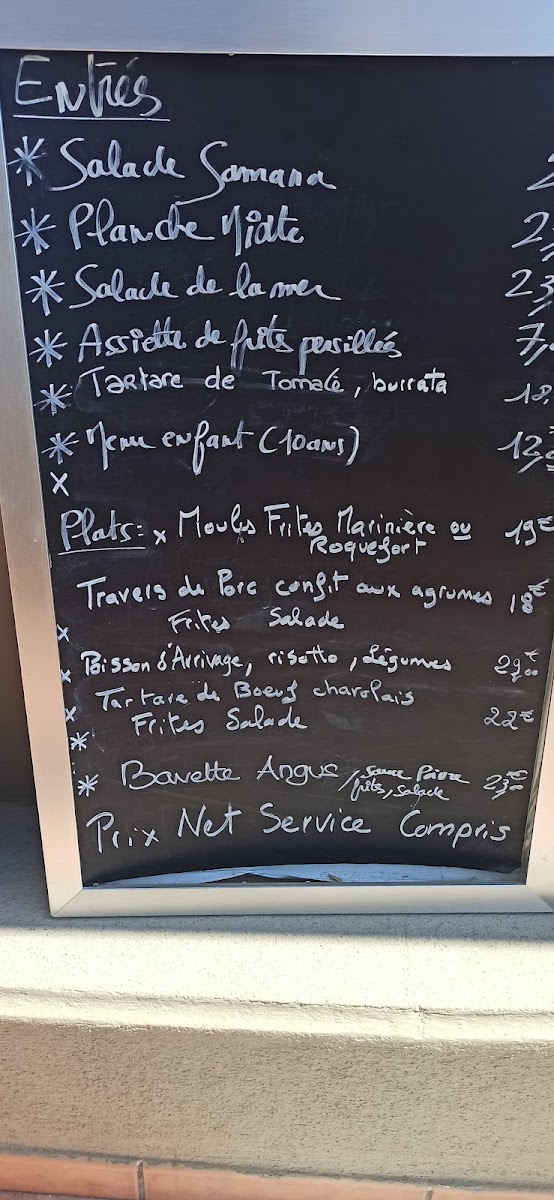 Entrés
* Salade Samana 2
* Planche Midte 2,
* Salade de la mer 23
* Assiette de frites persillées 7,
* Tartare de Tomate, burrata 18,
* Menu enfant (10ans) 12,
x
Plats: x Moules Frites Marinière ou 19€
Roquefort
Travers de Porc confit aux agrumes 18€
x Frites Salade
x Poisson d'Arrivage, risotto, Légumes 29,00€
x Tartare de Boeuf charolais
* Frites Salade 22€
* Bavette Angus / Sauce Poivre 23,00€
frites, Salade
Prix Net Service Compris